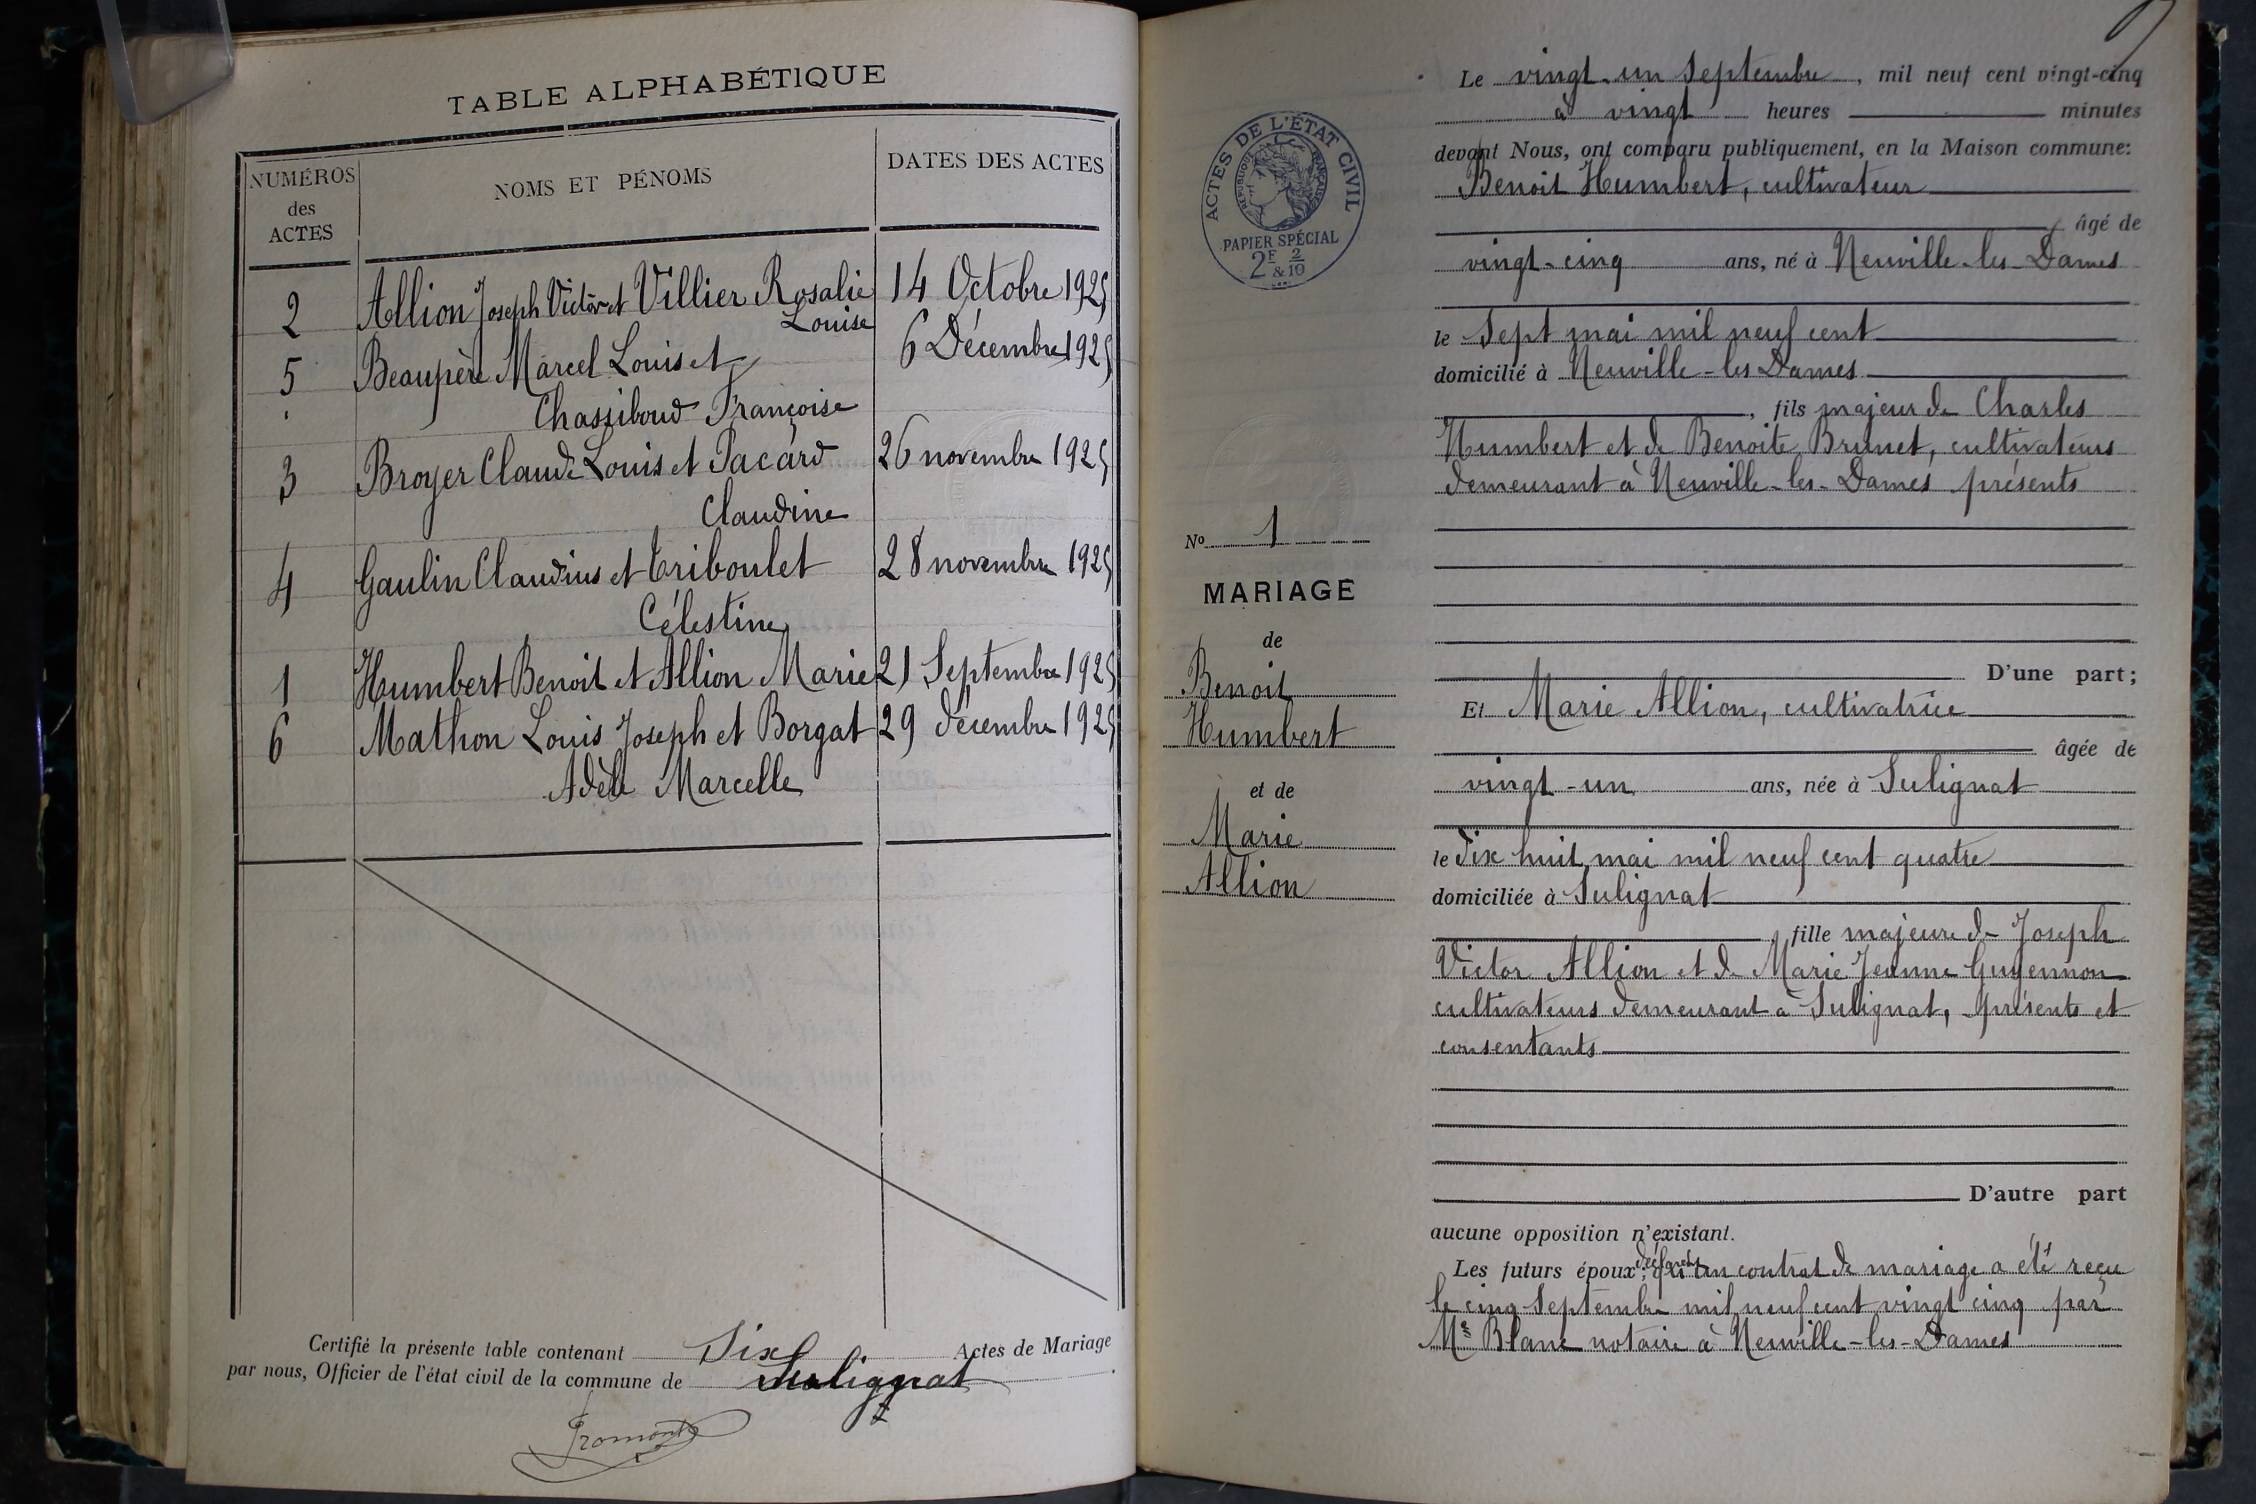 TABLE ALPHABÉTIQUE
NUMÉROS des ACTES
NOMS ET PÉNOMS
DATES DES ACTES
2 Allion Joseph Victor et Villier Rosalie 14 Octobre 1925
Louise
5 Beaupère Marcel Louis et 6 Décembre 1925
Chassiboud Françoise
3 Broyer Claude Louis et Pacard 26 novembre 1925
Claudine
4 Gaulin Claudius et Triboulet 28 novembre 1925
Célestine
1 Humbert Benoit et Allion Marie 21 Septembre 1925
6 Mathon Louis Joseph et Borgat 29 décembre 1925
Adèle Marcelle
Certifié la présente table contenant Six Actes de Mariage
par nous, Officier de l'état civil de la commune de Sulignat
ACTES DE L'ÉTAT CIVIL
RÉPUBLIQUE FRANÇAISE
PAPIER SPÉCIAL
2F & 2/10
No 1
MARIAGE
de
Benoit
Humbert
et de
Marie
Allion
Le vingt-un Septembre, mil neuf cent vingt-cinq
à vingt heures minutes
devant Nous, ont comparu publiquement, en la Maison commune:
Benoit Humbert, cultivateur
âgé de
vingt-cinq ans, né à Neuville-les-Dames
le Sept mai mil neuf cent
domicilié à Neuville-les Dames
, fils majeur de Charles
Humbert et de Benoite Brunet, cultivateurs
demeurant à Neuville-les-Dames présents
D'une part;
Et Marie Allion, cultivatrice
âgée de
vingt-un ans, née à Sulignat
le dix huit mai mil neuf cent quatre
domiciliée à Sulignat
fille majeure de Joseph
Victor Allion et de Marie Jeanne Guyennon
cultivateurs demeurant à Sulignat, présents et
consentants
D'autre part
aucune opposition n'existant.
Les futurs époux déclarent qu'un contrat de mariage a été reçu
le cinq Septembre mil neuf cent vingt cinq par
Me Blanc notaire à Neuville-les-Dames